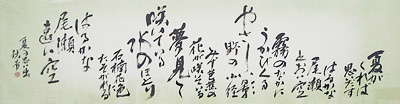 夏が
くれば
思い出す
はるかな
尾瀬
とおい空
霧のなかに
うかびくる
やさしい影
野の小径
みず芭蕉の
花が咲いている
夢見て
咲いている
水のほとり
石楠花色に
たそがれる
はるかな
尾瀬
遠い空
夏の思い出